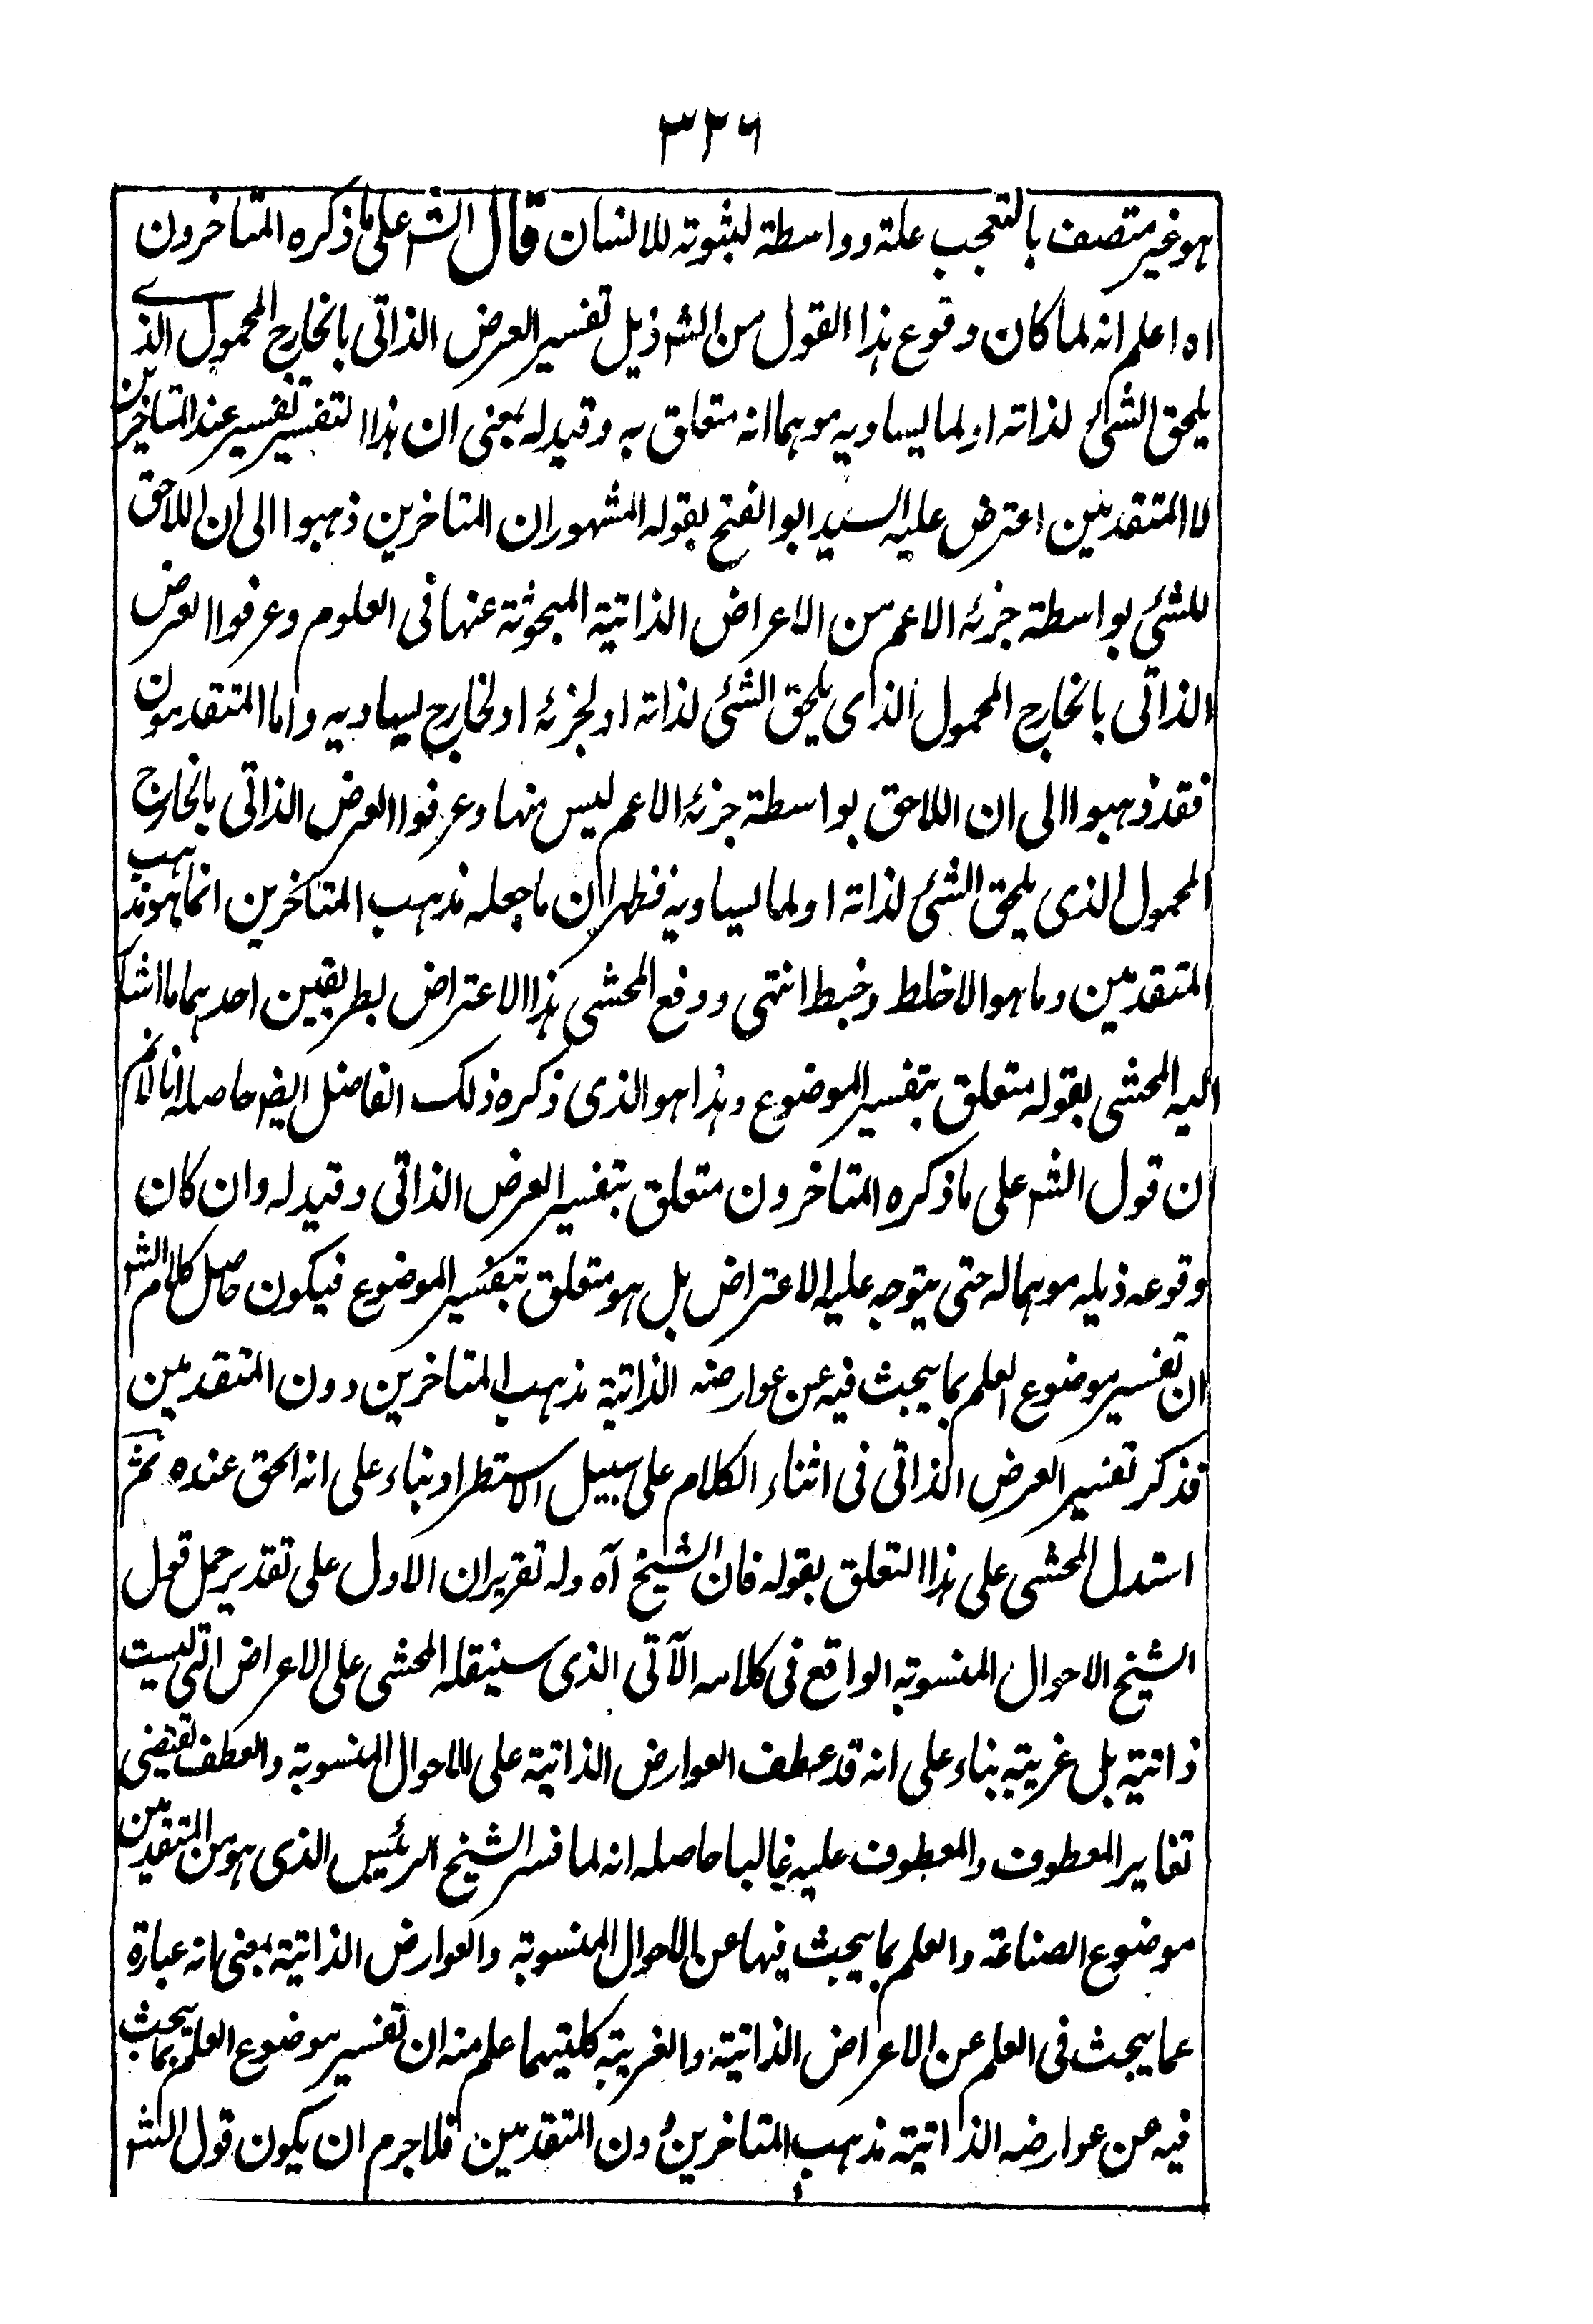 ٣٢٦
هو غير متصف بالتعجب علة وواسطة لثبوته للانسان قال الشـ على ما ذكره المتاخرون
اه اعلم انه لما كان وقوع هذا القول من الشـ ذيل تفسير العرض الذاتى بالخارج المحمول الذى
يلحق الشئ لذاته او لما يساويه موهما انه متعلق به وقيد له بمعنى ان هذا التفسير تفسير عند المتاخرين
لا المتقدمين اعترض عليه السيد ابو الفتح بقوله المشهور ان المتاخرين ذهبوا الى ان اللاحق
للشئ بواسطة جزئه الاعم من الاعراض الذاتية المبحوثة عنها فى العلوم وعرفوا العرض
الذاتى بالخارج المحمول الذى يلحق الشئ لذاته او لجزئه او لخارج يساويه واما المتقدمون
فقد ذهبوا الى ان اللاحق بواسطة جزئه الاعم ليس منها وعرفوا العرض الذاتى بالخارج
المحمول الذى يلحق الشئ لذاته او لما يساويه فظهر ان ما جعله مذهب المتاخرين انما هو مذهب
المتقدمين وما هو الا خلط وخبط انتهى ودفع المحشى هذا الاعتراض بطريقين احدهما ما اشار
اليه المحشى بقوله متعلق بتفسير الموضوع وهذا هو الذى ذكره ذلك الفاضل ايضا حاصله انا لانم
ان قول الشـ على ما ذكره المتاخرون متعلق بتفسير العرض الذاتى وقيد له وان كان
وقوعه ذيله موهما له حتى يتوجه عليه الاعتراض بل هو متعلق بتفسير الموضوع فيكون حاصل كلام الشـ
ان تفسير موضوع العلم بما يبحث فيه عن عوارضه الذاتية مذهب المتاخرين دون المتقدمين
فذكر تفسير العرض الذاتى فى اثناء الكلام على سبيل الاستطراد بناء على انه الحق عنده ثم
استدل المحشى على هذا التعلق بقوله فان الشيخ آه وله تقريران الاول على تقدير حمل قول
الشيخ الاحوال المنسوبة الواقع فى كلامه الآتى الذى سينقله المحشى على الاعراض التى ليست
ذاتية بل غريبة بناء على انه قد عطف العوارض الذاتية على الاحوال المنسوبة والعطف يقتضى
تغاير المعطوف والمعطوف عليه غالبا حاصله انه لما فسر الشيخ الرئيس الذى هو من المتقدمين
موضوع الصناعة والعلم بما يبحث فيها عن الاحوال المنسوبة والعوارض الذاتية بمعنى انه عبارة
عما يبحث فى العلم عن الاعراض الذاتية والغريبة كليتهما علم منه ان تفسير موضوع العلم بما يبحث
فيه عن عوارضه الذاتية مذهب المتاخرين دون المتقدمين فلا جرم ان يكون قول الشـ